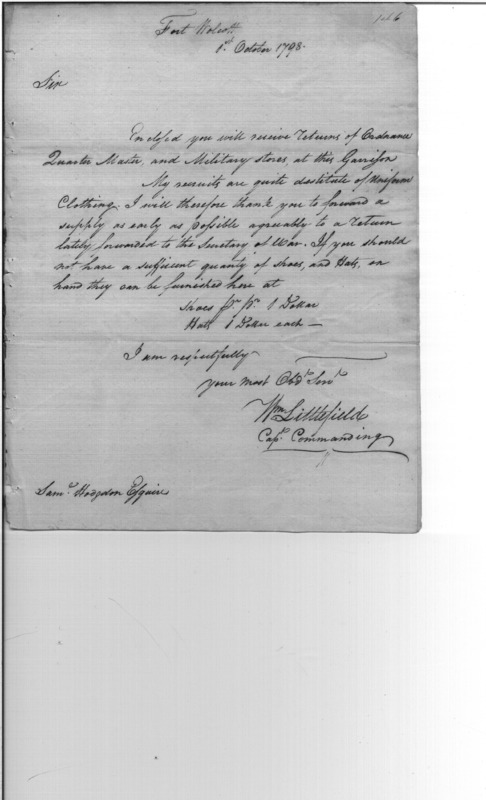 Fort Wolcott
1st October 1798.
Sir
Enclosed you will receive returns of Ordnance
Quarter Master, and Military stores, at this Garrison
My recruits are quite destitute of Uniform
Clothing. I will therefore thank you to forward a
supply as early as posible agreeably to a return
lately forwarded to the Secretary of War. If you should
not have a sufficient quanty of Shoes, and Hats, on
hand they can be furnished here at
Shoes pr. pr. 1 Dollar
Hats 1 Dollar each —
I am respectfully
your most Obdt. Servt.
Wm Littlefield
Capt. Commanding
Saml. Hodgdon Esquire